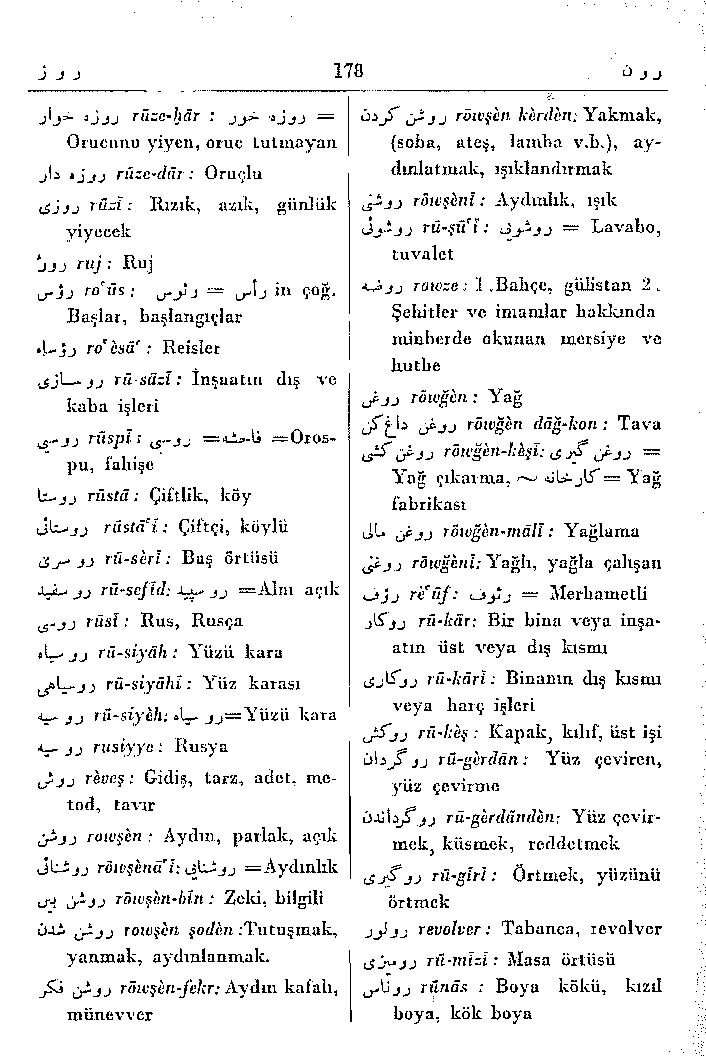 روز 178 رون
روزه خوار rūze-ḫār : روزه خور =
Orucunu yiyen, oruc tutmayan
روزه دار rūze-dār : Oruçlu
روزی rūzī : Rızık, azık, günlük
yiyecek
روژ ruj : Ruj
رؤس ro'ūs : رئوس = رأس in çoğ.
Başlar, başlangıçlar
رؤساء ro'èsā' : Reisler
روسازی rū-sāzī : İnşaatın dış ve
kaba işleri
روسپی rūspī : روسپی = فاحشه =Oros-
pu, fahişe
روستا rūstā : Çiftlik, köy
روستائی rūstā'ī : Çiftçi, köylü
روسری rū-serī : Baş örtüsü
رو سفید rū-sefīd: رو سپید =Alnı açık
روسی rūsī : Rus, Rusça
رو سیاه rū-siyāh : Yüzü kara
روسیاهی rū-siyāhī : Yüz karası
رو سیه rū-siyèh: رو سیاه=Yüzü kara
روسیه rusiyye : Rusya
روش rèveş : Gidiş, tarz, adet, me-
tod, tavır
روشن rowşèn : Aydın, parlak, açık
روشنائی rōwşènā'ī: روشنایی =Aydınlık
روشن بین rōwşèn-bīn : Zeki, bilgili
روشن شدن rowşèn şodèn :Tutuşmak,
yanmak, aydınlanmak.
روشن فکر rōwşèn-fekr: Aydın kafalı,
münevver
روشن کردن rōwşèn kèrdèn: Yakmak,
(soba, ateş, lamba v.b.), ay-
dınlatmak, ışıklandırmak
روشنی rōwşènī : Aydınlık, ışık
روشوئی rū-şū'ī : روشویی = Lavabo,
tuvalet
روضه rowze : 1 .Bahçe, gülistan 2.
Şehitler ve imamlar hakkında
minberde okunan mersiye ve
hutbe
روغن rōwğèn : Yağ
روغن داغ کن rōwğèn dāğ-kon : Tava
روغن کشی rōwğèn-kèşī: روغن گیری =
Yağ çıkarma, ~ کارخانه = Yağ
fabrikası
روغن مالی rōwğèn-mālī : Yağlama
روغنی rōwğènī: Yağlı, yağla çalışan
رؤف rè'ūf: رئوف = Merhametli
روکار rū-kār: Bir bina veya inşa-
atın üst veya dış kısmı
روکاری rū-kārī : Binanın dış kısmı
veya harç işleri
روکش rū-keş : Kapak, kılıf, üst işi
رو گردان rū-gèrdān : Yüz çeviren,
yüz çevirme
رو گرداندن rū-gèrdāndèn: Yüz çevir-
mek, küsmek, reddetmek
رو گیری rū-gīrī : Örtmek, yüzünü
örtmek
رولور revolver : Tabanca, revolver
رومیزی rū-mīzī : Masa örtüsü
روناس rūnās : Boya kökü, kızıl
boya, kök boya